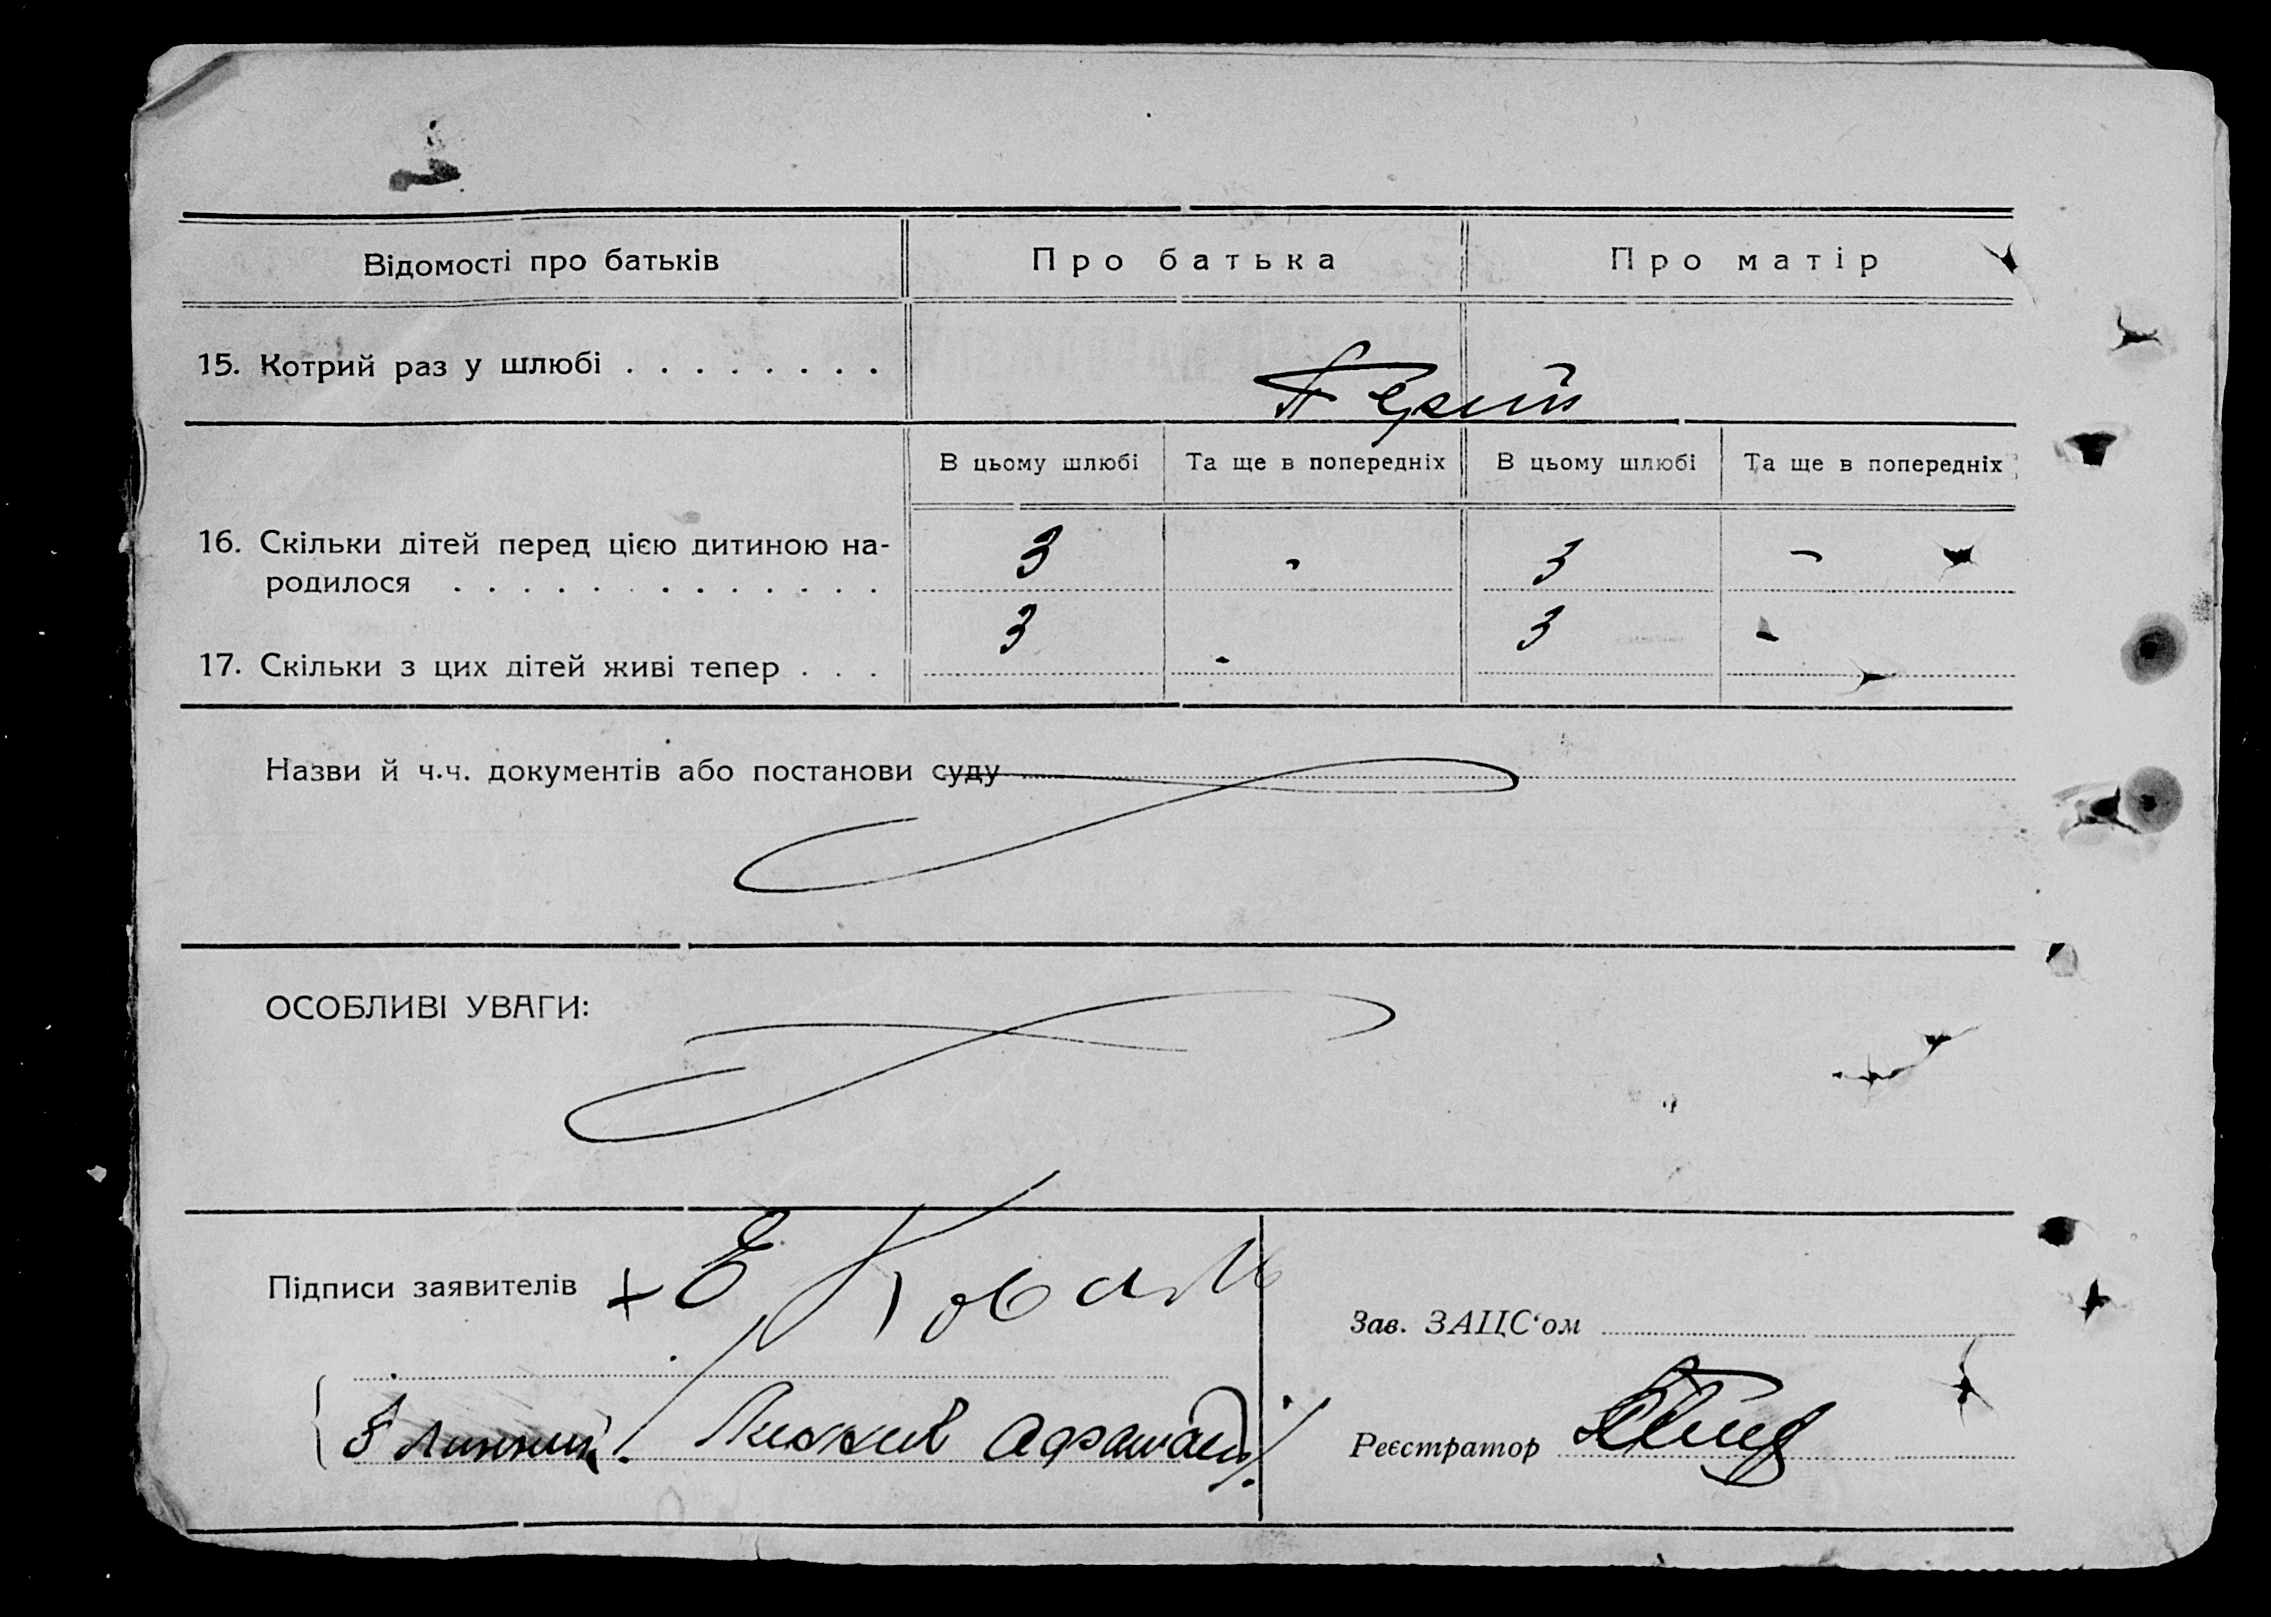 Відомості про батьків
Про батька
Про матір
15. Котрий раз у шлюбі . . . . . . . .
В цьому шлюбі
Та ще в попередніх
В цьому шлюбі
Та ще в попередніх
16. Скільки дітей перед цією дитиною на-
родилося . . . . . . . . . . . . .
3 - 3 -
17. Скільки з цих дітей живі тепер . . .
3 - 3 -
Назви й ч.ч. документів або постанови суду
ОСОБЛИВІ УВАГИ:
Підписи заявителів + Е. Коваль
Зав. ЗАЦС‘ом
Реєстратор